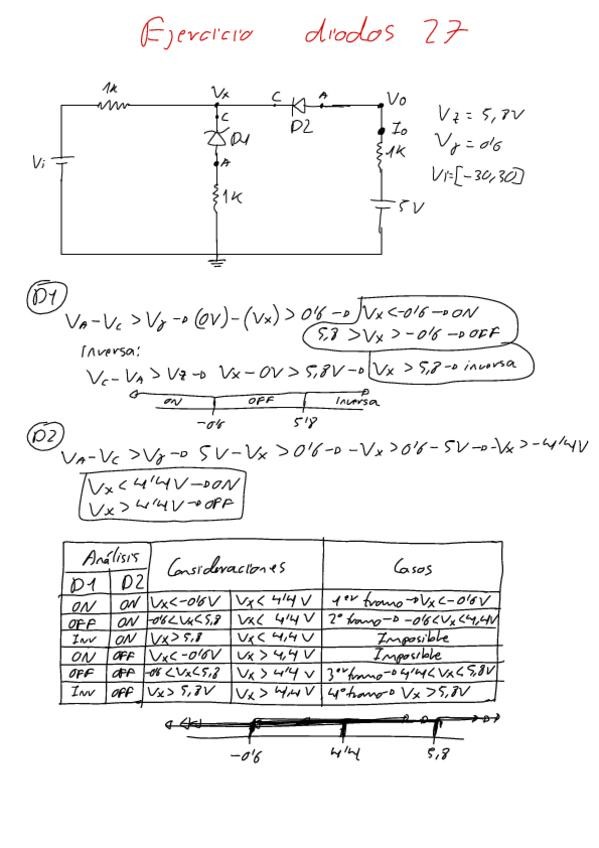 Ejercicio diodos 27
1k Vx C A Vo
C D2 Io
D1 1K
Vi A
1K 5V
Vz = 5,8V
Vγ = 0'6
Vi=[-30,30]
D1
VA-VC > Vγ → (0V)-(Vx) > 0'6 → Vx<-0'6 → ON
5,8 > Vx > -0'6 → OFF
Inversa:
VC-VA > VZ → Vx-0V > 5,8V → Vx > 5,8 → inversa
ON OFF Inversa
-0'6 5'8
D2
VA-VC > Vγ → 5V-Vx > 0'6 → -Vx > 0'6-5V → -Vx > -4'4V
Vx < 4'4V → ON
Vx > 4'4V → OFF
Análisis Consideraciones Casos
D1 D2
ON ON Vx<-0'6V Vx< 4'4V 1er tramo → Vx<-0'6V
OFF ON -0'6<Vx<5,8 Vx< 4'4V 2º tramo → -0'6<Vx<4,4V
Inv ON Vx>5,8 Vx< 4,4V Imposible
ON OFF Vx<-0'6V Vx > 4,4V Imposible
OFF OFF -0'6<Vx<5,8 Vx > 4'4V 3er tramo → 4'4<Vx<5,8V
Inv OFF Vx> 5,8V Vx > 4,4V 4º tramo → Vx >5,8V
-0'6 4'4 5,8